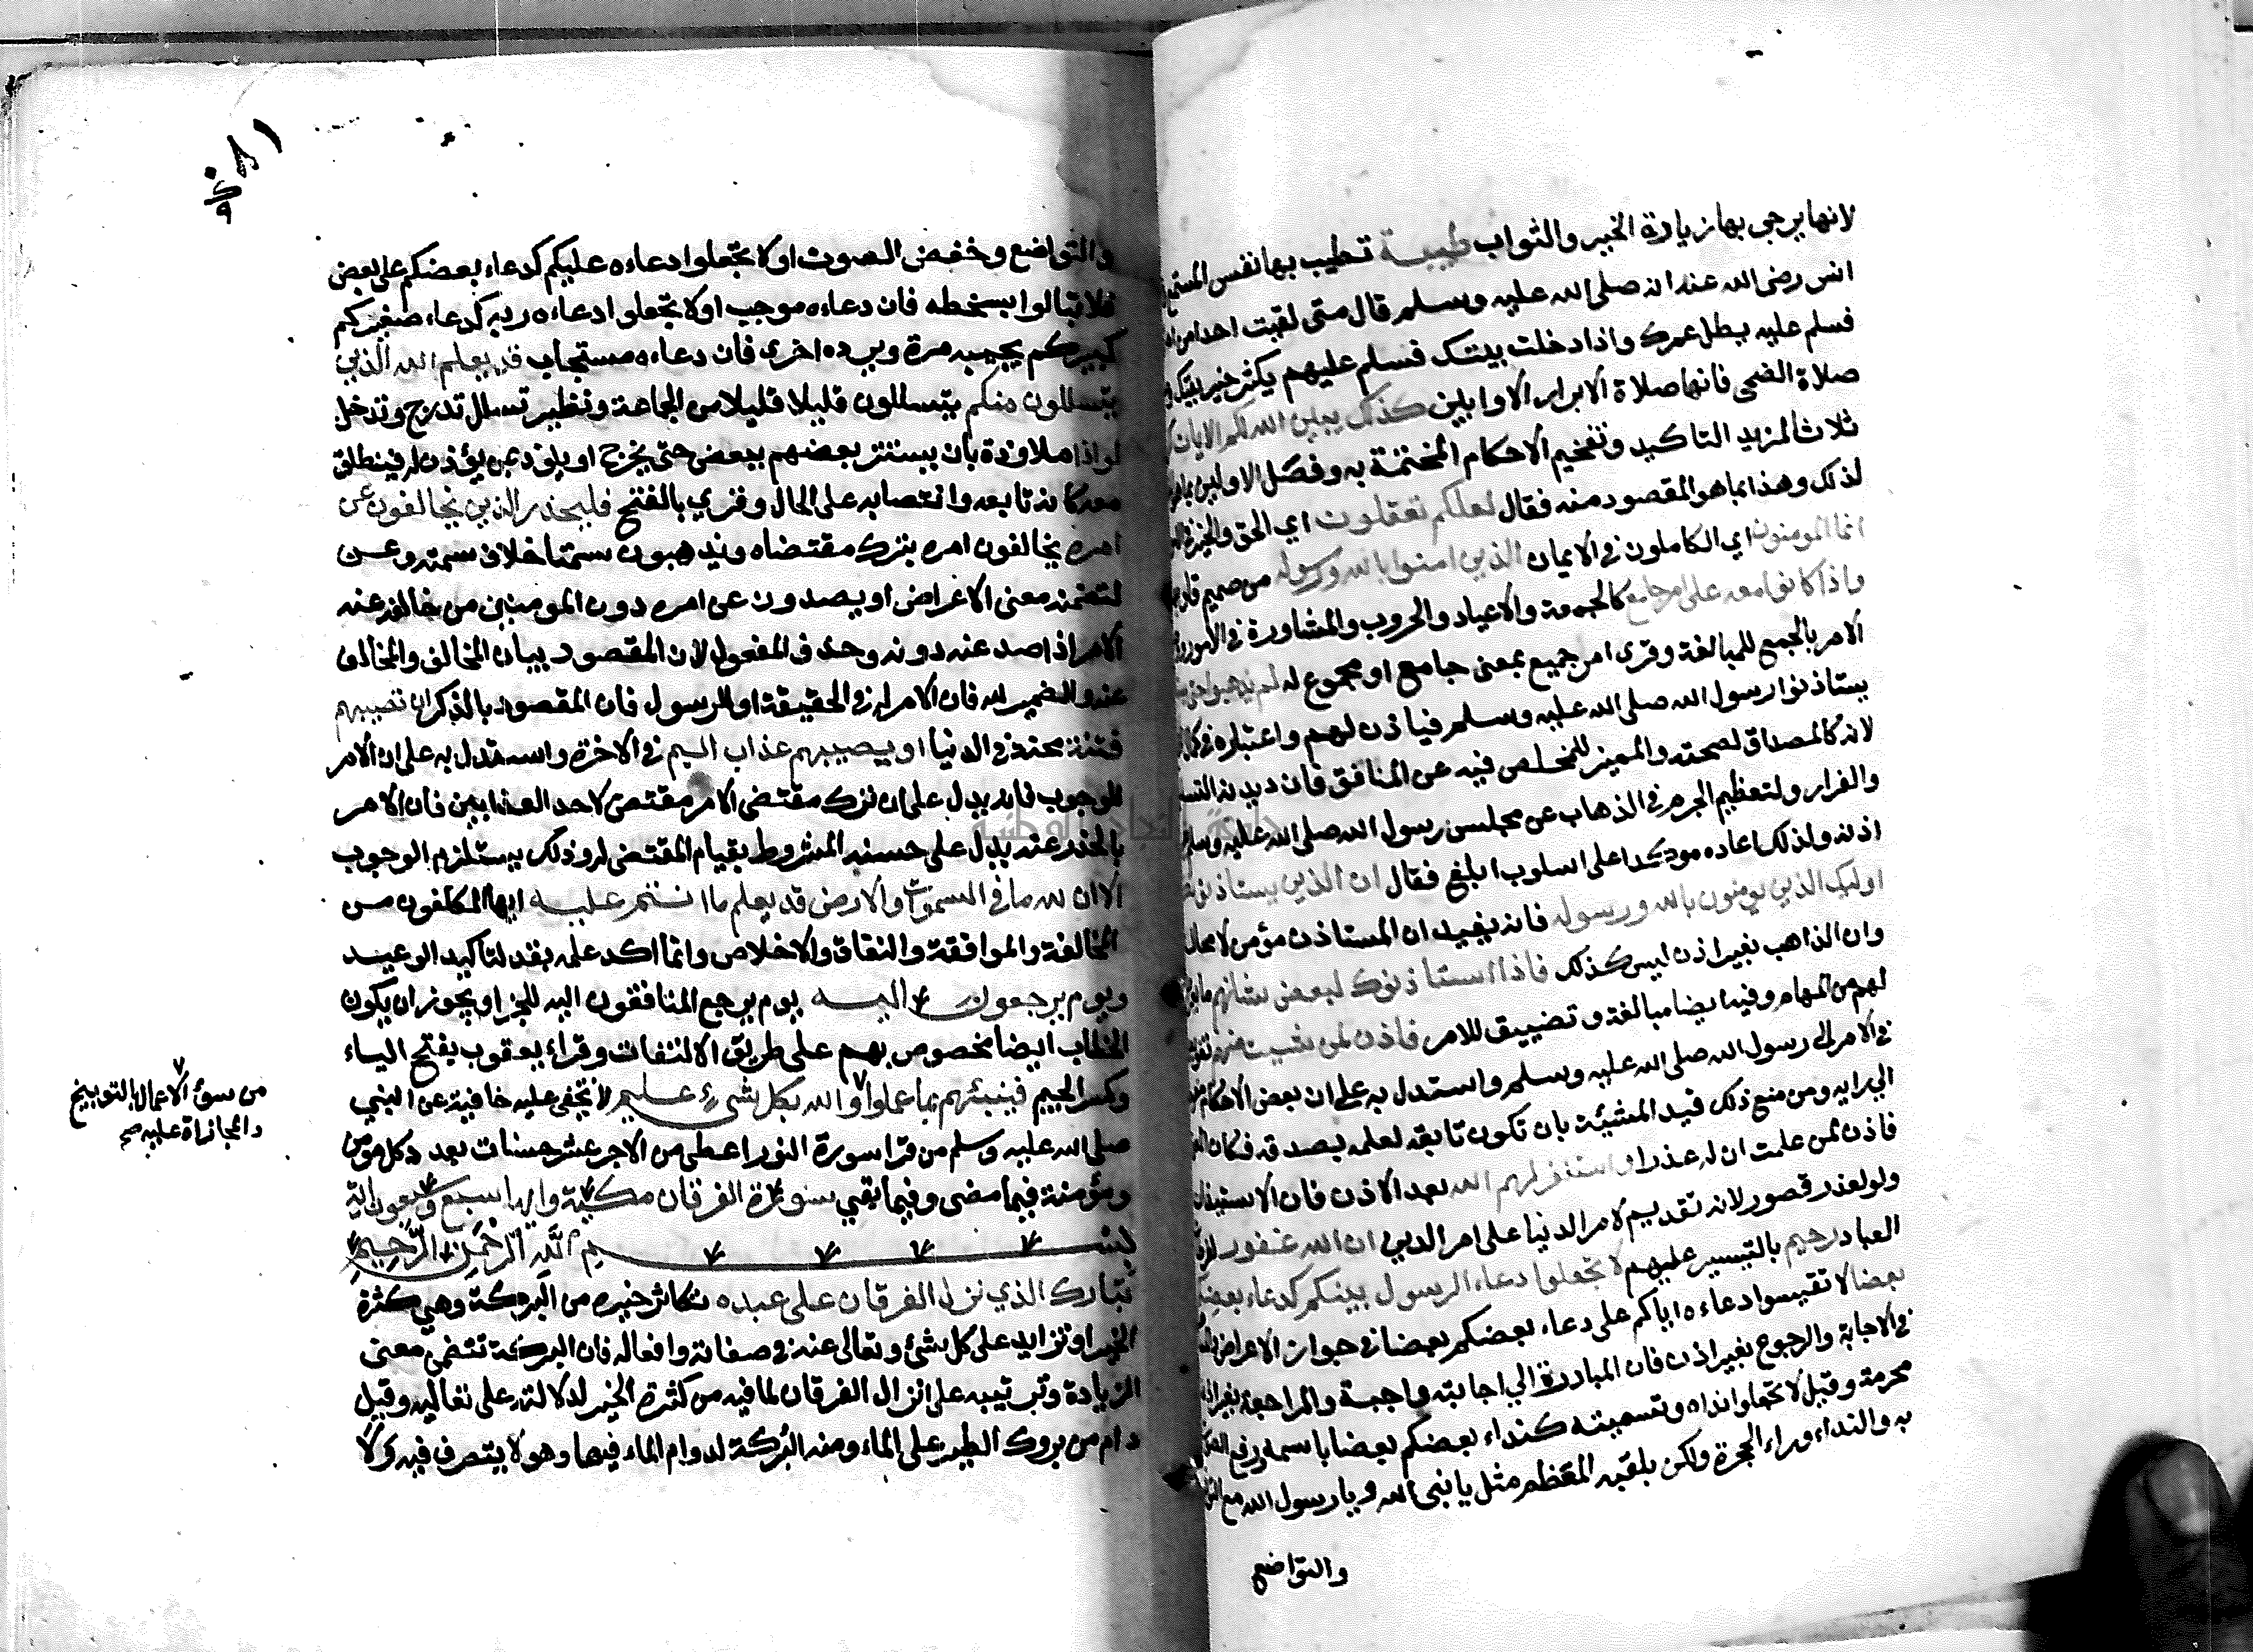 لانها يرجى بها زيادة الخير والثواب طيبة تطيب بها نفس المستمع
انس رضى الله عنه انه صلى الله عليه وسلم قال متى لقيت احدا من
فسلم عليه يطل عمرك واذا دخلت بيتك فسلم عليهم يكثر خير بيتك
صلاة الضحى فانها صلاة الابرار الاوابين كذلك يبين الله لكم الايات
ثلاث المزيد التاكيد وتفخيم الاحكام المختتمة به وفصل الاولين بما هو
لذلك وهذا بما هو المقصود منه فقال لعلكم تعقلون اي الحق والخير
انما المومنون اي الكاملون في الايمان الذين امنوا بالله ورسوله من صميم
واذا كانوا معه على امر جامع كالجمعة والاعياد والحروب والمشاورة في الامور
الامر بالجمع للمبالغة وقرى امر جميع بمعنى جامع او مجموع له لم يذهبوا حتى
يستاذنوا رسول الله صلى الله عليه وسلم فياذن لهم واعتباره في
لانه كالمصداق لصحته والمميز للمخلص فيه عن المنافق فان ديدنه
والفرار ولتعظيم الجرم في الذهاب عن مجلس رسول الله صلى الله عليه وسلم
اذنه ولذلك اعاده موكدا على اسلوب ابلغ فقال ان الذين يستاذنونك
اوليك الذين يومنون بالله ورسوله فانه يفيد ان المستاذن مؤمن لا محالة
وان الذاهب بغير اذن ليس كذلك فاذا استاذنوك لبعض شانهم
لهم من المهام وفيه ايضا مبالغة وتضييق للامر فاذن لمن شيت منهم
في الامر الى رسول الله صلى الله عليه وسلم واستدل به على ان بعض الاحكام
الي رايه ومن منع ذلك قيد المشيئة بان تكون تابعة لعلمه بصدقه فكان
فاذن لمن علمت ان له عذرا واستغفر لهم الله بعد الاذن فان الاستيذان
ولو لعذر قصور لانه تقديم لامر الدنيا على امر الدين ان الله غفور
العباد رحيم بالتيسير عليهم لا تجعلوا دعاء الرسول بينكم كدعاء بعضكم
بعضا لا تقيسوا دعاءه اياكم على دعاء بعضكم بعضا في جواز الاعراض
في الاجابة والرجوع بغير اذن فان المبادرة الي اجابته واجبة والمراجعة بغير
محرمة وقيل لا تجعلوا نداه وتسميته كنداء بعضكم بعضا باسمه ورفع
به والنداء وراء الحجرة ولكن بلقبه المعظم مثل يا نبى الله ويا رسول الله مع
والتواضع
والتواضع وخفض الصوت او لا تجعلوا دعاءه عليكم كدعاء بعضكم على بعض
فلا تبالوا بسخطه فان دعاءه موجب او لا تجعلوا دعاءه ربه كدعاء صغيركم
كبيركم يجيبه مرة ويرده اخرى فان دعاءه مستجاب قد يعلم الله الذين
يتسللون منكم يتسللون قليلا قليلا من الجماعة ونظير تسلل تدرج وتدخل
لواذا ملاوذة بان يستتر بعضهم ببعض حتى يخرج او يلوذ بمن يؤذن له فينطلق
معه كانه تابعه وانتصابه على الحال وقري بالفتح فليحذر الذين يخالفون عن
امره يخالفون امره بترك مقتضاه ويذهبون سمتا خلاف سمته وعن
لتضمنه معنى الاعراض او يصدون عن امره دون المومنين من خالفه عنه
الامر اذا صد عنه دونه وحذف المفعول لان المقصود بيان المخالف والمخالف
عنه والضمير لله فان الامر له في الحقيقة او للرسول فان المقصود بالذكر ان تصيبهم
فتنة محنة في الدنيا او يصيبهم عذاب اليم في الاخرة واستدل به على ان الامر
للوجوب فانه يدل على ان ترك مقتضى الامر مقتض لاحد العذابين فان الامر
بالحذر عنه يدل على حسنه المشروط بقيام المقتضى له وذلك يستلزم الوجوب
الا ان لله ما في السموات والارض قد يعلم ما انتم عليه ايها المكلفون من
المخالفة والموافقة والنفاق والاخلاص وانما اكد علمه بقد لتاكيد الوعيد
ويوم يرجعون اليه يوم يرجع المنافقون اليه للجزا ويجوز ان يكون
الخطاب ايضا مخصوص بهم على طريق الالتفات وقراء يعقوب بفتح الياء
وكسر الجيم فينبئهم بما عملوا والله بكل شيء عليم لا يخفى عليه خافية عن النبي
من سوء الاعمال بالتوبيخ
والمجازاة عليه صح
صلى الله عليه وسلم من قرا سورة النور اعطى من الاجر عشر حسنات بعدد كل مومن
ومؤمنة فيما مضى وفيما بقي سورة الفرقان مكية وايها سبع وسبعون اية
بسم الله الرحمن الرحيم
تبارك الذي نزل الفرقان على عبده تكاثر خيره من البركة وهي كثرة
الخير او تزايد على كل شئ وتعالى عنه في صفاته وافعاله فان البركة تتضمن معنى
الزيادة وترتيبه على انزال الفرقان لما فيه من كثرة الخير لدلالته على تعاليه وقيل
دام من بروك الطير على الماء ومنه البركة لدوام الماء فيها وهو لا يتصرف فيه ولا